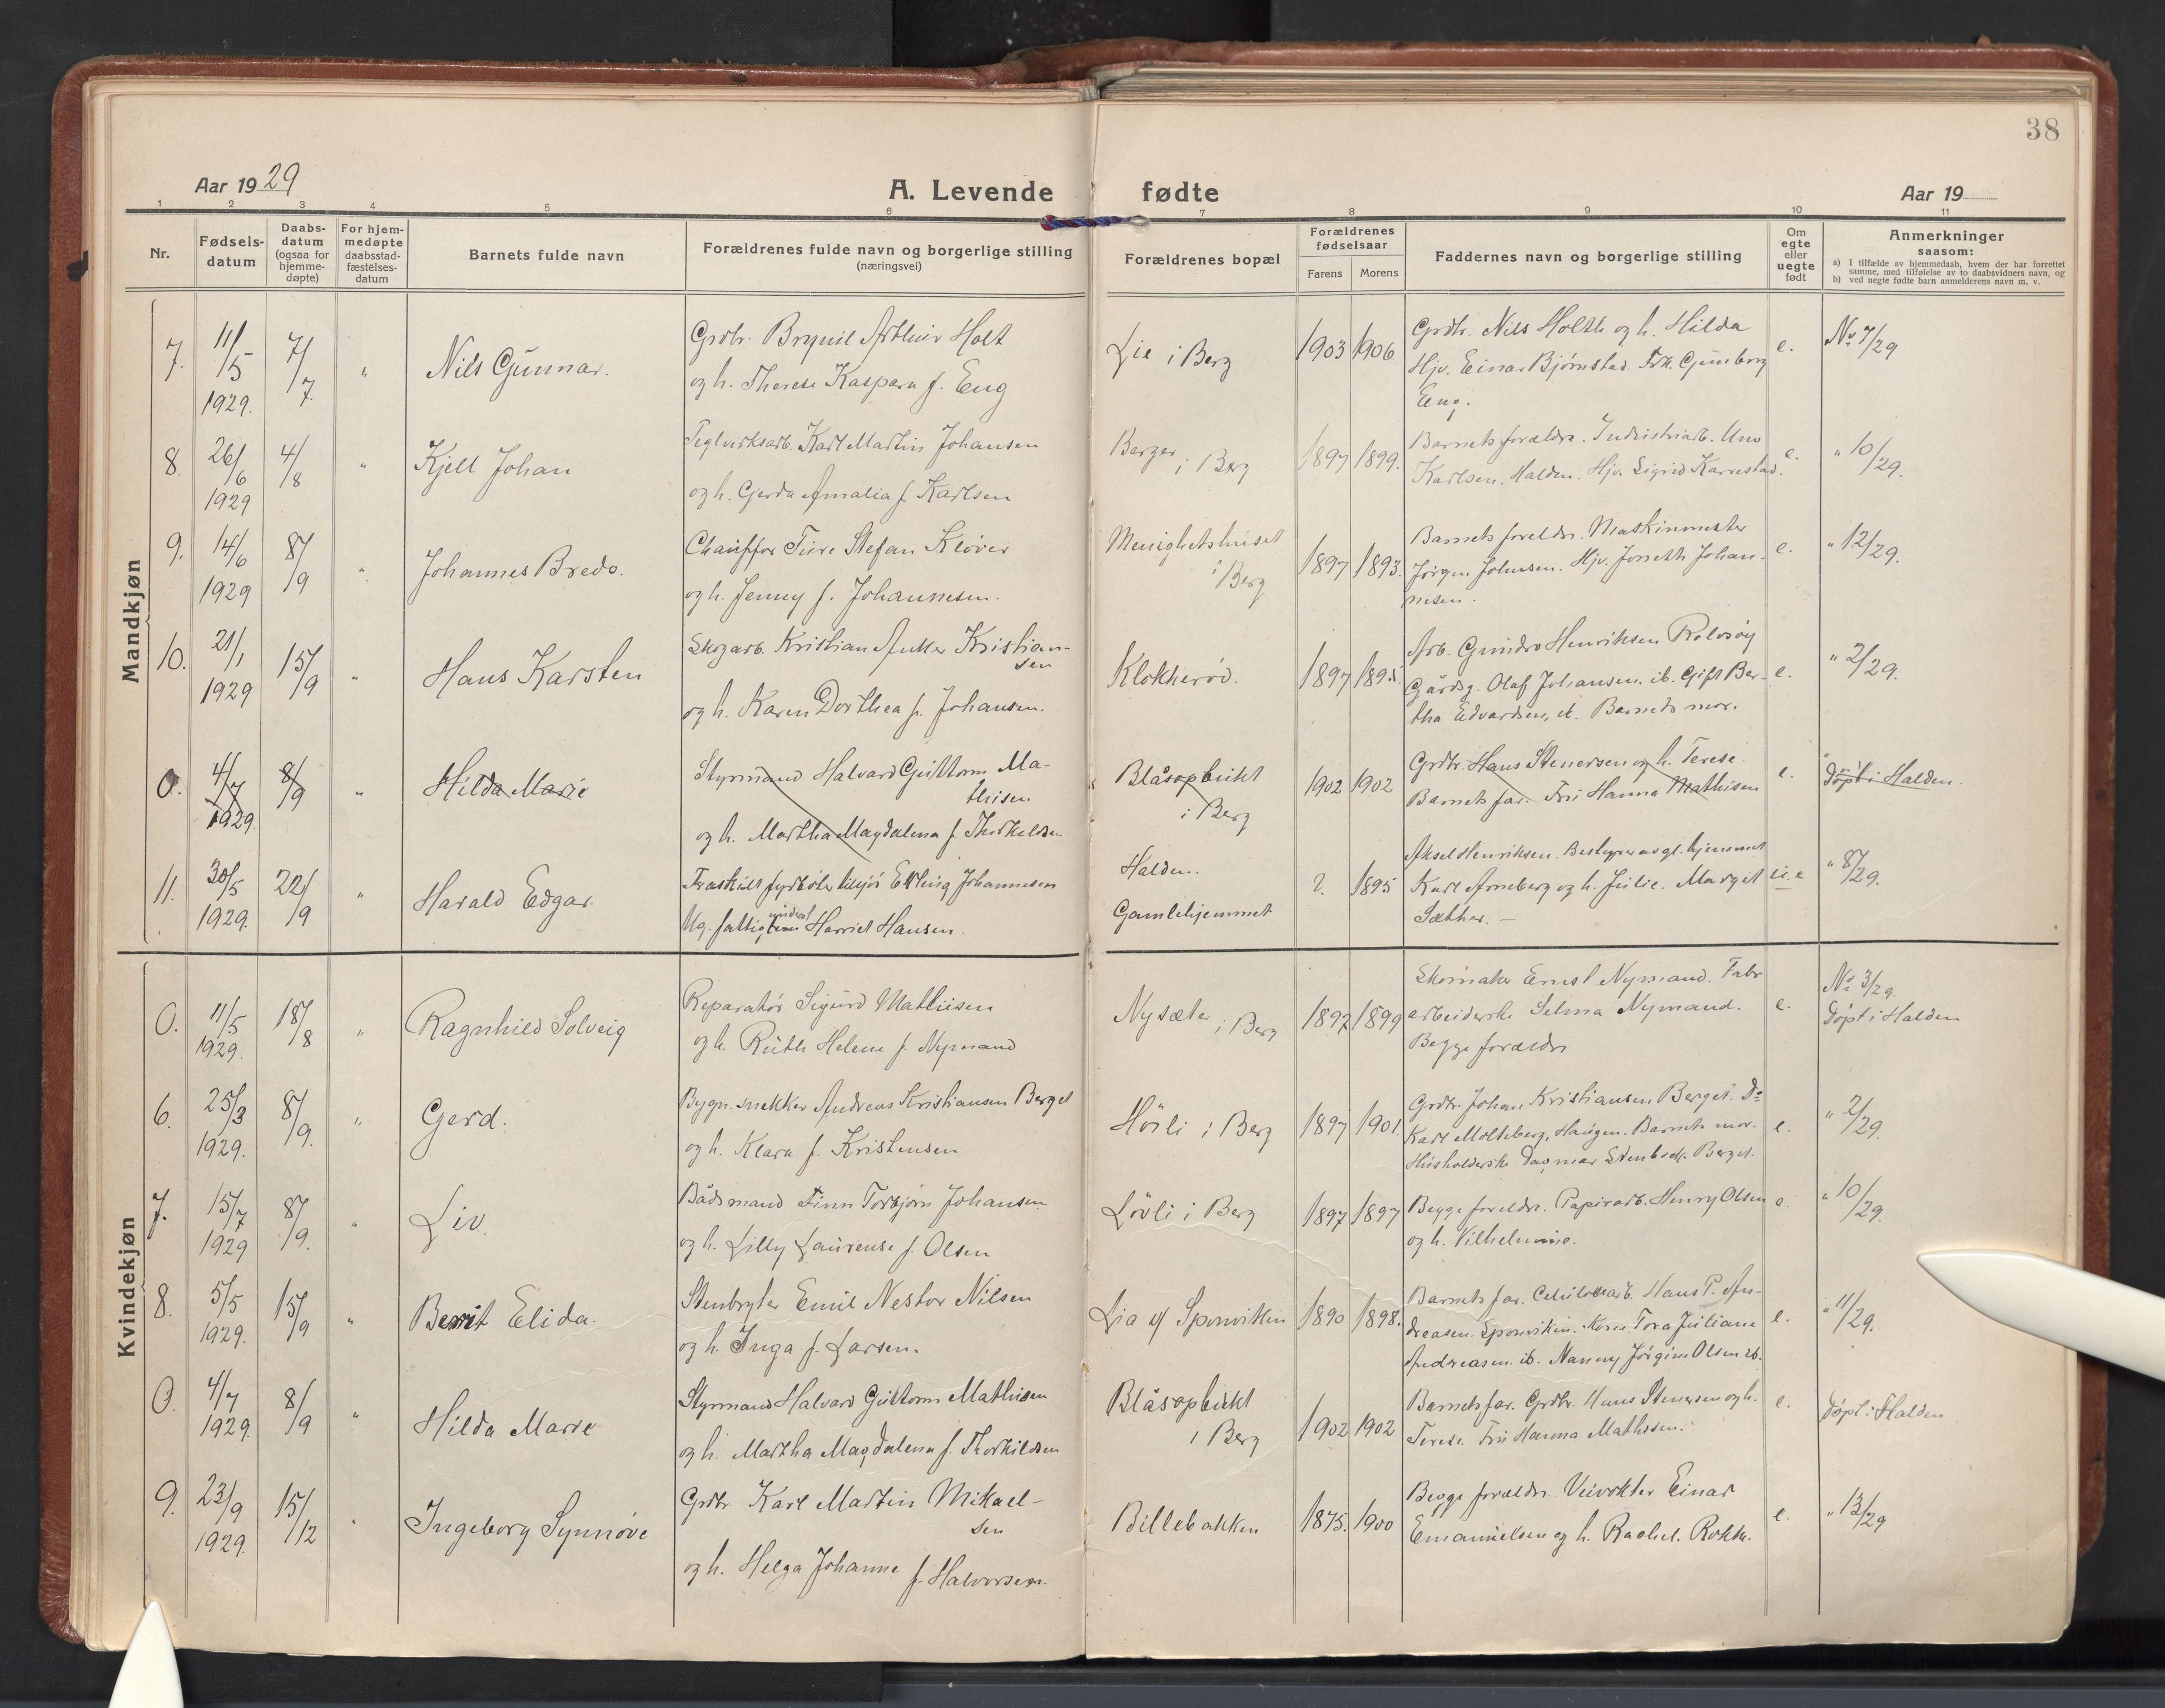 38
Aar 1929
A. Levende fødte
Aar 19
1 2 3 4 5 6 7 8 9 10 11
Nr.
Fødsels-
datum
Daabs-
datum
(ogsaa for
hjemme-
døpte)
For hjem-
medøpte
daabsstad-
fæstelses-
datum
Barnets fulde navn
Forældrenes fulde navn og borgerlige stilling
(næringsvei)
Forældrenes bopæl
Forældrenes
fødselsaar
Farens Morens
Faddernes navn og borgerlige stilling
Om
egte
eller
uegte
født
Anmerkninger
saasom:
a) I tilfælde av hjemmedaab, hvem der har forrettet
samme, med tilføielse av to daabsvidners navn, og
b) ved uegte fødte barn anmelderens navn m. v.
Mandkjøn
7. 11/5 1929. 7/7. " Nils Gunnar.
Grdbr. Brynil Arthur Holt
og h. Therese Kaspara f. Eng
Lie i Berg 1903 1906
Grdbr. Nils Holth og h. Hilda
Hjv. Einar Bjørnstad. Frk. Gunborg
Eng.
e. No 7/29
8. 26/6 1929 4/8 " Kjell Johan
Teglverksarb. Karl Martin Johansen
og h. Gerda Amalia f. Karlsen
Berger i Berg 1897 1899.
Barnets forældre. Industriarb. Uno
Karlsen. Halden. Hjv. Sigrid Karrestad.
e. " 10/29.
9. 14/6 1929 8/9 " Johannes Bredo.
Chauffør Ture Stefan Kløver
og h. Jenny f. Johannesen.
Menighetshuset
i Berg 1897 1893.
Barnets foreldre. Maskinmester
Jørgen Johnsen. Hjv. Joneth Johan-
nesen.
e. " 12/29.
10. 21/1 1929 15/9 " Hans Karsten
Skogarb. Kristian Anker Kristian-
sen
og h. Karen Dorthea f. Johansen.
Klokkerød. 1897 1895.
Arb. Gundro Henriksen Rolvsøy
Gårdsg. Olaf Johansen. ib. Gift Ber-
tha Edvardsen, Barnets mor.
e. " 2/29.
0. 4/7 1929. 8/9 " Hilda Marie
Styrmand Halvard Guttorm Ma-
thisen
og h. Martha Magdalena f. Thorkeldsen
Blåsopbukt
i Berg 1902 1902
Grdbr. Hans Stenersen og h. Terese.
Barnets far. Fru Hanna Mathisen
e. " Døpt i Halden.
11. 30/5 1929. 22/9 " Harald Edgar.
Fraskilt fyrbøter Erling Johannesen
Ug. fattigunderst. Harriet Hansen.
Halden.
Gamlehjemmet ?. 1895
Aksel Henriksen. Bestyrer av gl. hjemmet
Karl Arneberg og h. Julie. Margit
Sæther. —
u.e " 8/29.
Kvindekjøn
0. 11/5 1929. 18/8 " Ragnhild Solveig
Reparatør Sigurd Mathisen
og h. Ruth Helene f. Nymand
Nysæter i Berg 1897 1899
Skomaker Ernst Nymand. Fabr
arbeiderske Selma Nymand.
Begge forældre
e. No 3/29.
Døpt i Halden
6. 25/3 1929. 8/9. " Gerd.
Bygn. snekker Andreas Kristiansen Berget
og h. Klara f. Kristensen
Høili i Berg 1897 1901.
Grdbr. Johan Kristiansen Berget. Do
Karl Molteberg, Haugen. Barnets mor.
Husholderske Dagmar Stenbæk. Berget.
e. " 2/29.
7. 15/7 1929 8/9. " Liv.
Bådsmand Finn Torbjørn Johansen
og h. Lilly Laurense f. Olsen
Løvli i Berg 1897 1897
Begge foreldre. Papirarb. Henry Olsen
og h. Vilhelmine.
e. " 10/29.
8. 5/5 1929. 15/9 " Berit Elida.
Stenbryter Emil Nestor Nilsen
og h. Inga f. Larsen.
Lia v/ Sponvikken 1890 1898.
Barnets far. Celulosearb. Hans P. An-
dreasen. Sponviken. Tora Juliane
Andreasen. ib. Nanny Jørgine Olsen ib.
e. " 11/29.
0. 4/7 1929. 8/9 " Hilda Marie
Styrmand Halvard Guttorm Mathisen
og h. Martha Magdalena f. Thorkildsen
Blåsopbukt
i Berg 1902 1902
Barnets far. Grdbr. Hans Stenersen og h.
Terese. Fru Hanna Mathisen.
e. Døpt i Halden
9. 23/9 1929. 15/12 " Ingeborg Synnøve
Grdbr Karl Martin Mikael-
sen
og h. Helga Johanne f. Halvorsen.
Billebakken 1875. 1900
Begge forældre. Veivokter Einar
Emanuelsen og h. Rachel. Rokke.
e. " 13/29